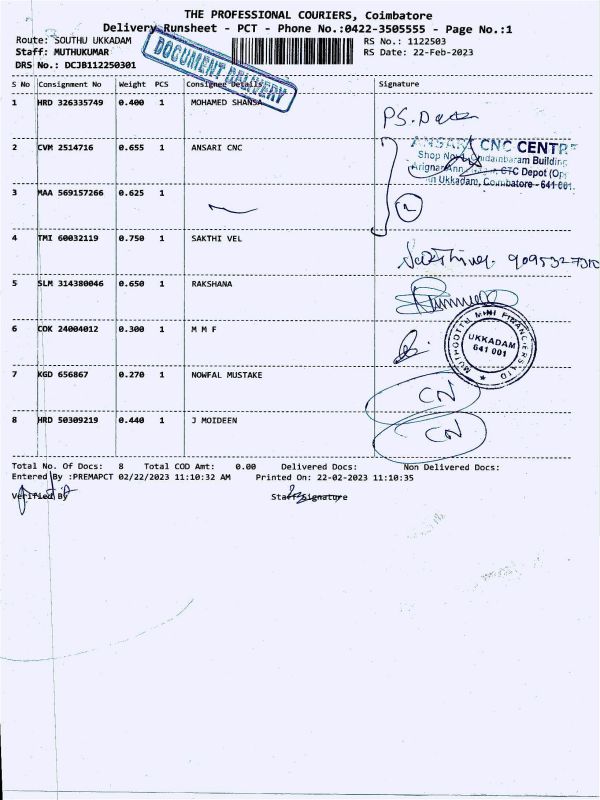 THE PROFESSIONAL COURIERS, Coimbatore
Delivery Runsheet - PCT - Phone No.:0422-3505555 - Page No.:1
Route: SOUTHU UKKADAM
RS No.: 1122503
Staff: MUTHUKUMAR
RS Date: 22-Feb-2023
DRS No.: DCJB112250301
DOCUMENT DELIVERY
S No Consignment No Weight PCS Consignee Details Signature
1 HRD 326335749 0.400 1 MOHAMED SHANSA
2 CVM 2514716 0.655 1 ANSARI CNC
ANSARI CNC CENTR
Shop No Chidambaram Building
CTC Depot (Op
Ukkadam, Coimbatore - 641 001.
3 MAA 569157266 0.625 1
2
4 TMI 60032119 0.750 1 SAKTHI VEL
5 SLM 314380046 0.650 1 RAKSHANA
6 COK 24004012 0.300 1 M M F
MUTHOOTTU MINI FINANCIERS LTD
UKKADAM
641 001
7 KGD 656867 0.270 1 NOWFAL MUSTAKE CN
8 HRD 50309219 0.440 1 J MOIDEEN CN
Total No. Of Docs: 8 Total COD Amt: 0.00 Delivered Docs: Non Delivered Docs:
Entered By :PREMAPCT 02/22/2023 11:10:32 AM Printed On: 22-02-2023 11:10:35
Verified By Staff Signature